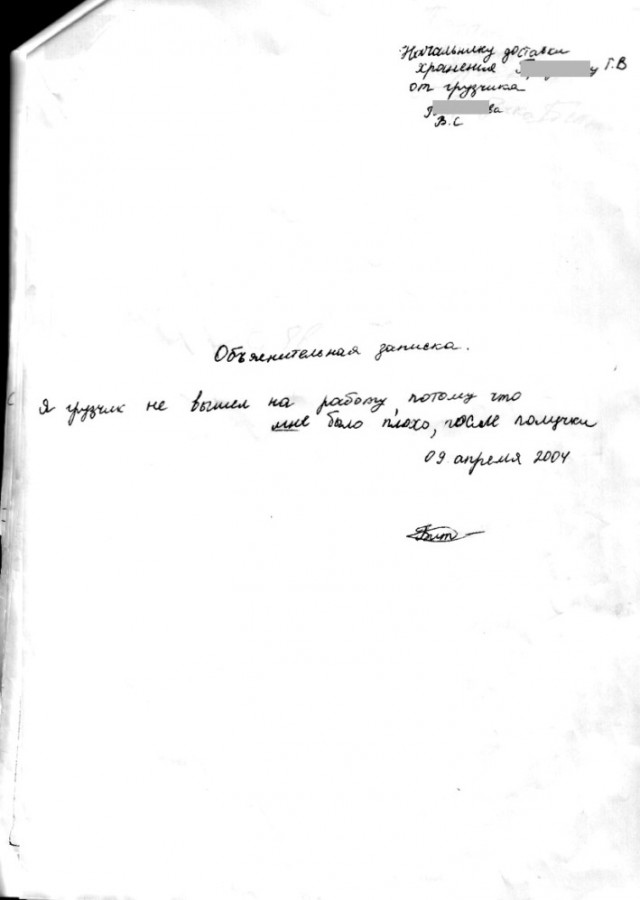 Начальнику доставки
хранения Г.В
от грузчика
ва
В.С
Объяснительная записка.
Я грузчик не вышел на работу, потому что
мне было плохо, после получки
09 апреля 2004